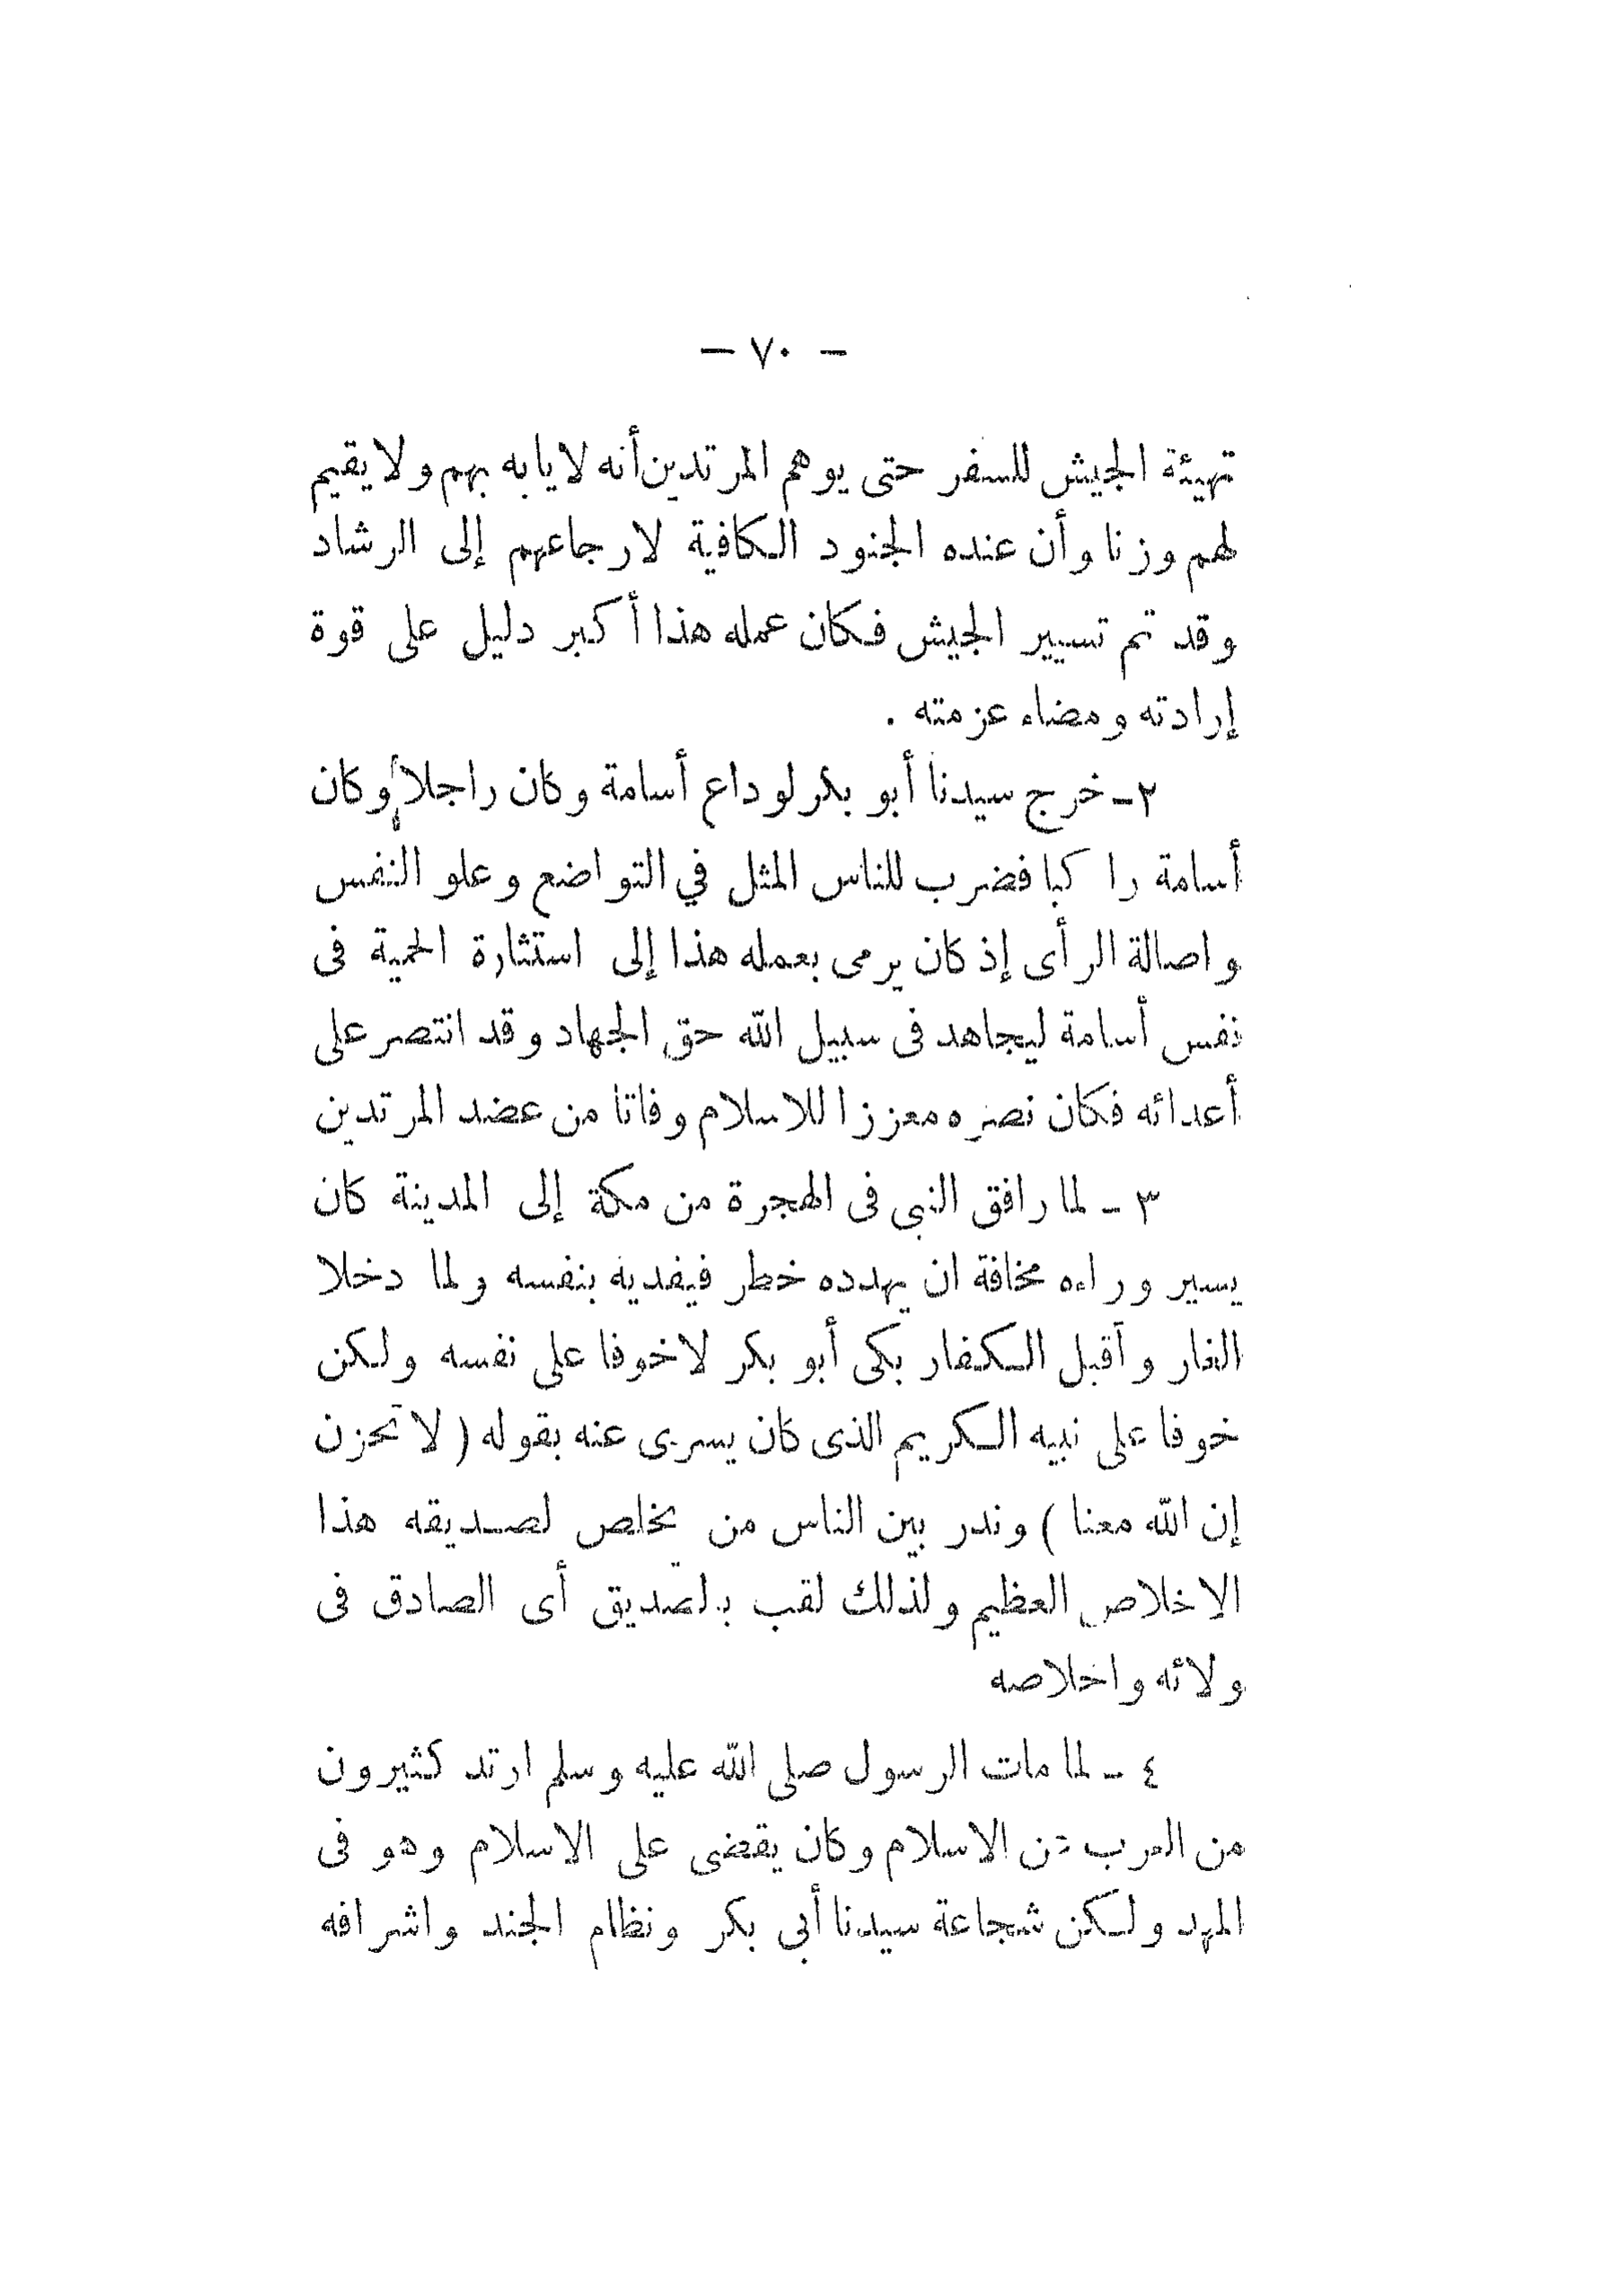 — ٧٠ —
تهيئة الجيش للسفر حتى يوهم المرتدين أنه لا يابه بهم ولا يقيم
لهم وزنا وأن عنده الجنود الكافية لارجاعهم إلى الرشاد
وقد تم تسيير الجيش فكان عمله هذا أكبر دليل على قوة
إرادته ومضاء عزمته .
٢ – خرج سيدنا أبو بكر لوداع أسامة وكان راجلا وكان
أسامة راكبا فضرب للناس المثل في التواضع وعلو النفس
واصالة الرأى إذ كان يرمى بعمله هذا إلى استثارة الحمية فى
نفس أسامة ليجاهد فى سبيل الله حق الجهاد وقد انتصر على
أعدائه فكان نصره معززا للاسلام وفاتا من عضد المرتدين
٣ – لما رافق النبى فى الهجرة من مكة إلى المدينة كان
يسير وراءه مخافة ان يهدده خطر فيفديه بنفسه ولما دخلا
الغار وأقبل الكفار بكى أبو بكر لا خوفا على نفسه ولكن
خوفا على نبيه الكريم الذى كان يسرى عنه بقوله ( لا تحزن
إن الله معنا ) وندر بين الناس من يخلص لصديقه هذا
الاخلاص العظيم ولذلك لقب بالصديق أى الصادق فى
ولائه واخلاصه
٤ – لما مات الرسول صلى الله عليه وسلم ارتد كثيرون
من العرب عن الاسلام وكان يقضى على الاسلام وهو فى
المهد ولكن شجاعة سيدنا أبى بكر ونظام الجند واشرافه